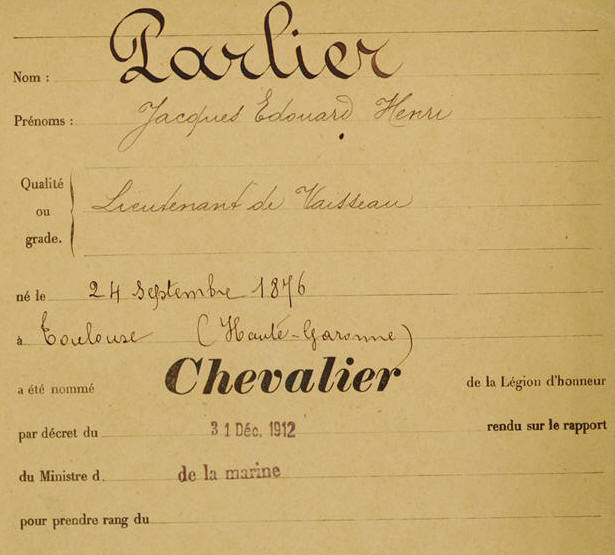 Nom : Parlier
Prénoms : Jacques Edouard Henri
Qualité
ou
grade. Lieutenant de Vaisseau
né le 24 septembre 1876
à Toulouse (Haute-Garonne)
a été nommé Chevalier de la Légion d'honneur
par décret du 31 Déc. 1912 rendu sur le rapport
du Ministre d. de la marine
pour prendre rang du